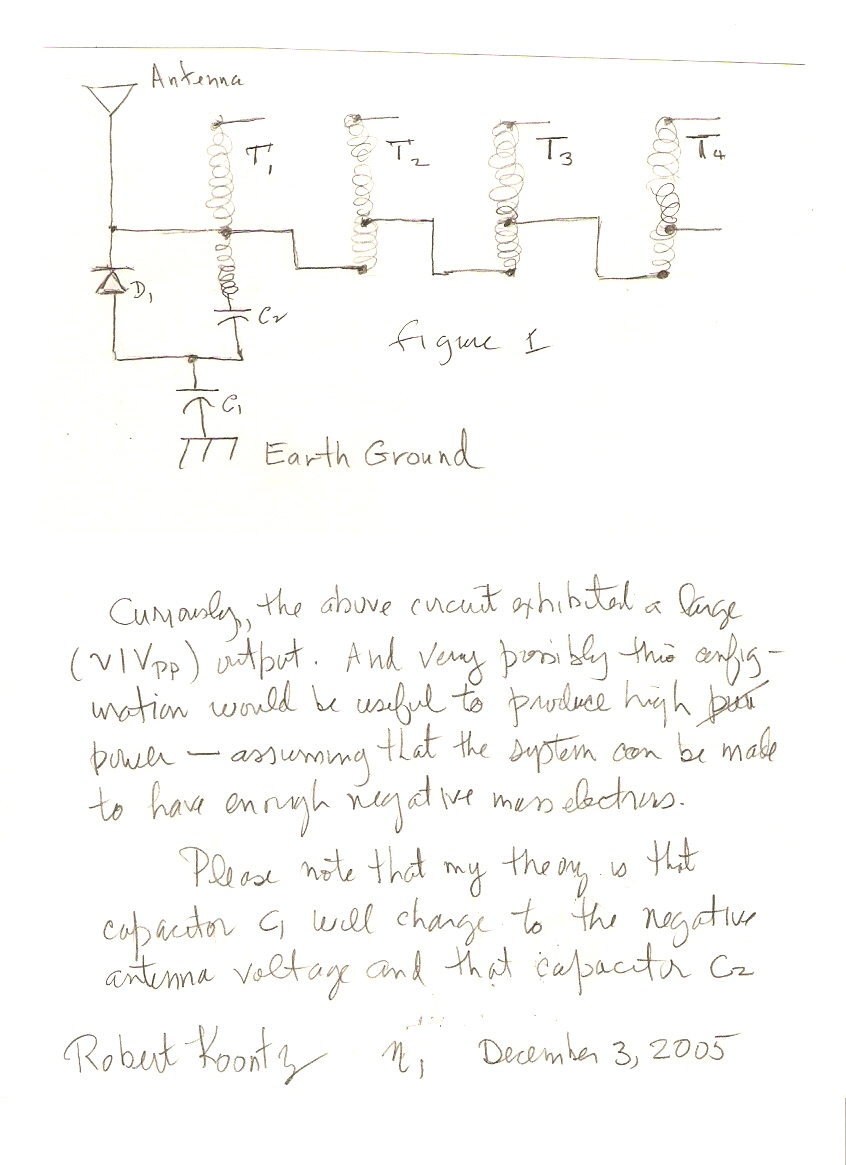 Antenna
T1
T2
T3
T4
D1
C2
figure 1
C1
Earth Ground
Curiously, the above circuit exhibited a large
(~1VPP) output. And very possibly this config-
uration would be useful to produce high
power — assuming that the system can be made
to have enough negative mass electrons.
Please note that my theory is that
capacitor C1 will charge to the negative
antenna voltage and that capacitor C2
Robert Koontz n1 December 3, 2005